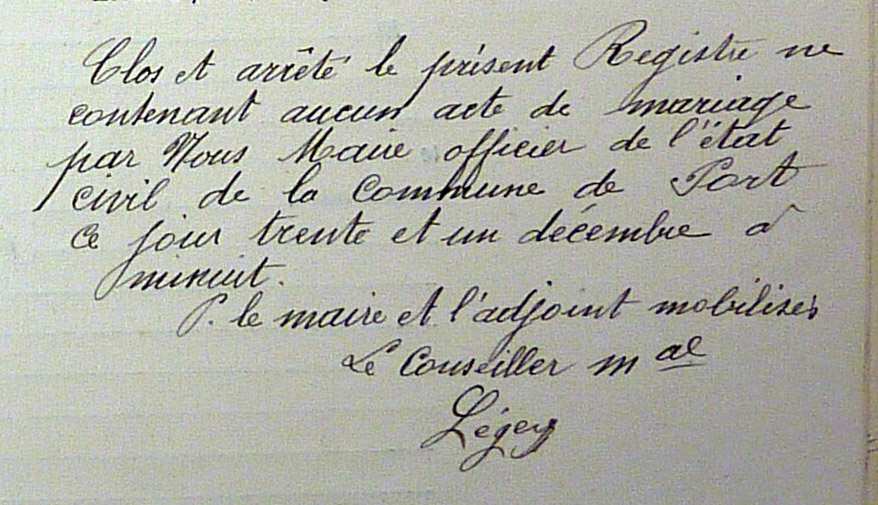 Clos et arrêté le présent Registre ne
contenant aucun acte de mariage
par Nous Maire officier de l'état
civil de la Commune de Port
Ce jour trente et un décembre à
minuit.
P. le maire et l'adjoint mobilisés
Le Conseiller m al
Légey